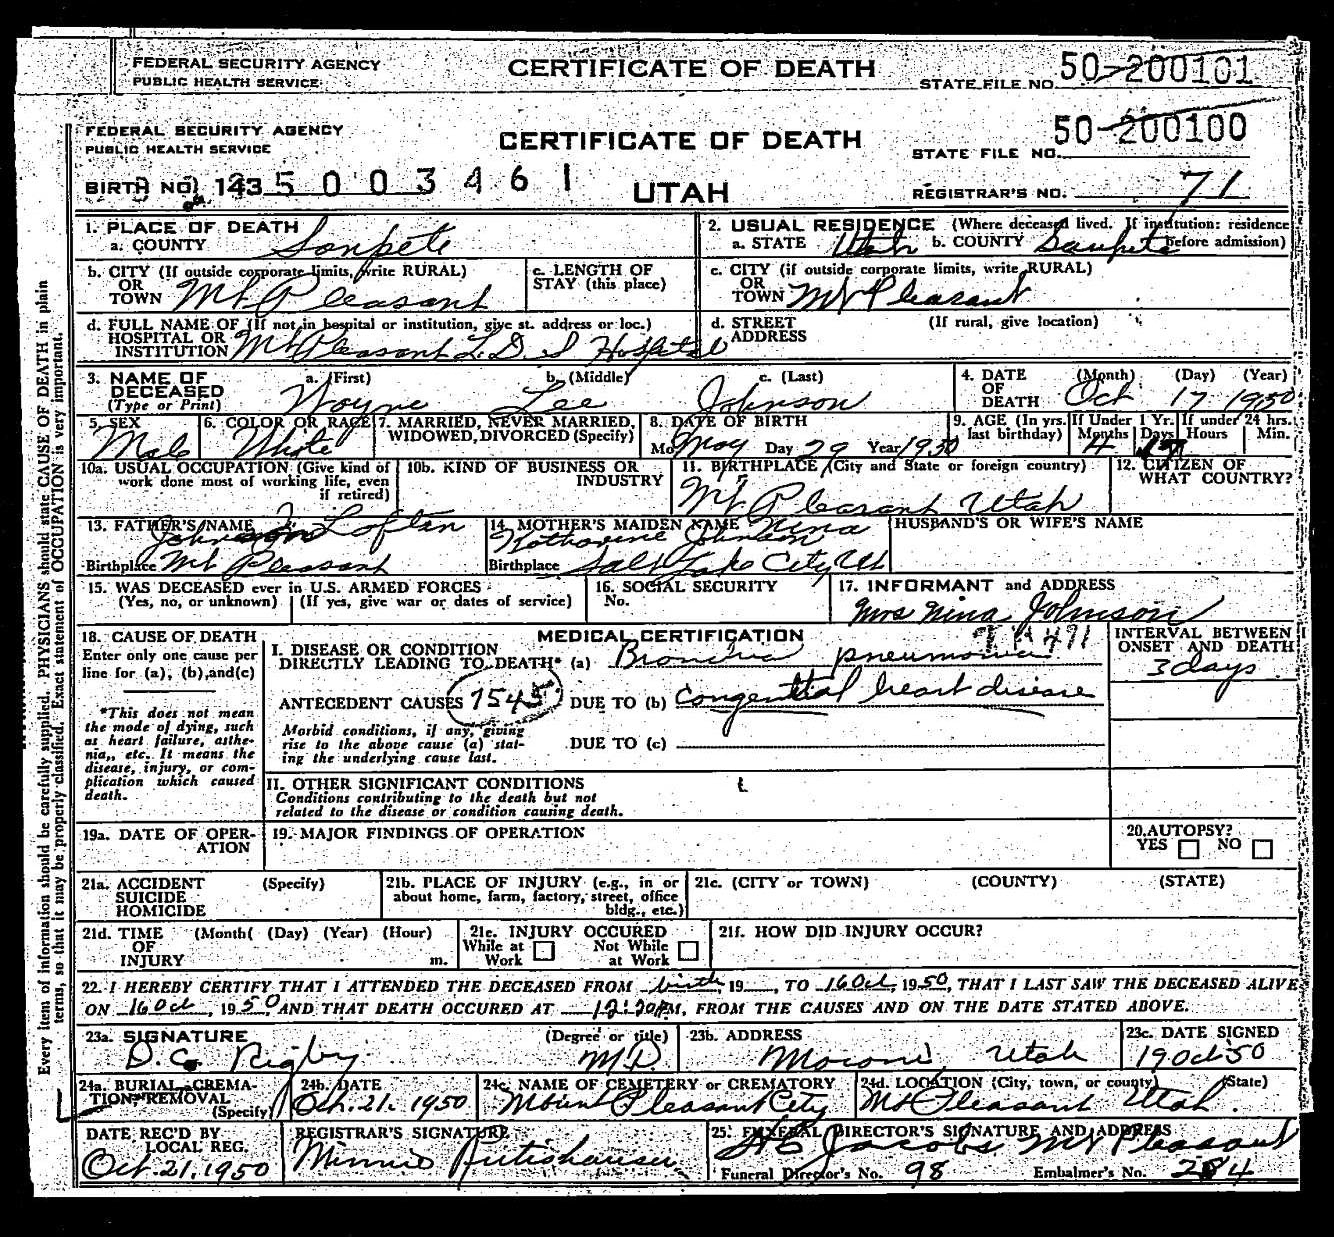 FEDERAL SECURITY AGENCY CERTIFICATE OF DEATH STATE FILE NO. 50-200101
PUBLIC HEALTH SERVICE
FEDERAL SECURITY AGENCY CERTIFICATE OF DEATH STATE FILE NO. 50-200100
PUBLIC HEALTH SERVICE
BIRTH NO. 143 5 0 0 3 4 6 1 UTAH REGISTRAR'S NO. 71
1. PLACE OF DEATH
a. COUNTY Sanpete
2. USUAL RESIDENCE (Where deceased lived. If institution: residence before admission)
a. STATE Utah b. COUNTY Sanpete
b. CITY (If outside corporate limits, write RURAL) OR TOWN Mt Pleasant
c. LENGTH OF STAY (this place)
c. CITY (if outside corporate limits, write RURAL) OR TOWN Mt Pleasant
d. FULL NAME OF (If not in hospital or institution, give st. address or loc.) HOSPITAL OR INSTITUTION Mt Pleasant L.D.S Hospital
d. STREET ADDRESS (If rural, give location)
3. NAME OF DECEASED (Type or Print)
a. (First) Wayne b. (Middle) Lee c. (Last) Johnson
4. DATE OF DEATH (Month) (Day) (Year) Oct 17 1950
5. SEX Male
6. COLOR OR RACE White
7. MARRIED, NEVER MARRIED, WIDOWED, DIVORCED (Specify)
8. DATE OF BIRTH Mo May Day 29 Year 1950
9. AGE (In yrs. last birthday) If Under 1 Yr. Months 4 Days If under 24 hrs. Hours Min.
10a. USUAL OCCUPATION (Give kind of work done most of working life, even if retired)
10b. KIND OF BUSINESS OR INDUSTRY
11. BIRTHPLACE (City and State or foreign country) Mt Pleasant Utah
12. CITIZEN OF WHAT COUNTRY?
13. FATHER'S NAME Johnson Loftan
Birthplace Mt Pleasant
14. MOTHER'S MAIDEN NAME Nina
Katharine Johnson
Birthplace Salt Lake City Ut
HUSBAND'S OR WIFE'S NAME
15. WAS DECEASED ever in U.S. ARMED FORCES
(Yes, no, or unknown) (If yes, give war or dates of service)
16. SOCIAL SECURITY No.
17. INFORMANT and ADDRESS
Mrs Nina Johnson
18. CAUSE OF DEATH
Enter only one cause per line for (a), (b), and (c)
*This does not mean the mode of dying, such as heart failure, asthenia,, etc. It means the disease, injury, or complication which caused death.
MEDICAL CERTIFICATION
I. DISEASE OR CONDITION DIRECTLY LEADING TO DEATH* (a) Bronchial pneumonia
ANTECEDENT CAUSES 7545 DUE TO (b) congenital heart disease
Morbid conditions, if any, giving rise to the above cause (a) stating the underlying cause last.
DUE TO (c)
INTERVAL BETWEEN ONSET AND DEATH
3 days
II. OTHER SIGNIFICANT CONDITIONS
Conditions contributing to the death but not related to the disease or condition causing death.
19a. DATE OF OPERATION
19. MAJOR FINDINGS OF OPERATION
20. AUTOPSY? YES NO
21a. ACCIDENT SUICIDE HOMICIDE (Specify)
21b. PLACE OF INJURY (e.g., in or about home, farm, factory, street, office bldg., etc.)
21c. (CITY or TOWN) (COUNTY) (STATE)
21d. TIME OF INJURY (Month( (Day) (Year) (Hour) m.
21e. INJURY OCCURED While at Work Not While at Work
21f. HOW DID INJURY OCCUR?
22. I HEREBY CERTIFY THAT I ATTENDED THE DECEASED FROM birth, 19__, TO 16 Oct, 1950, THAT I LAST SAW THE DECEASED ALIVE
ON 16 Oct, 1950 AND THAT DEATH OCCURED AT 12:20 PM, FROM THE CAUSES AND ON THE DATE STATED ABOVE.
23a. SIGNATURE (Degree or title) D. C. Rigby M.D.
23b. ADDRESS Moroni Utah
23c. DATE SIGNED 19 Oct 50
24a. BURIAL, CREMATION, REMOVAL (Specify)
24b. DATE Oct. 21. 1950
24c. NAME OF CEMETERY or CREMATORY Mount Pleasant City
24d. LOCATION (City, town, or county) (State) Mt Pleasant Utah.
DATE REC'D BY LOCAL REG. Oct. 21. 1950
REGISTRAR'S SIGNATURE Minnie Rutishauser
25. FUNERAL DIRECTOR'S SIGNATURE AND ADDRESS Jacobs Mt Pleasant
Funeral Director's No. 98 Embalmer's No. 284
Every item of information should be carefully supplied. PHYSICIANS should state CAUSE OF DEATH in plain
terms, so that it may be properly classified. Exact statement of OCCUPATION is very important.